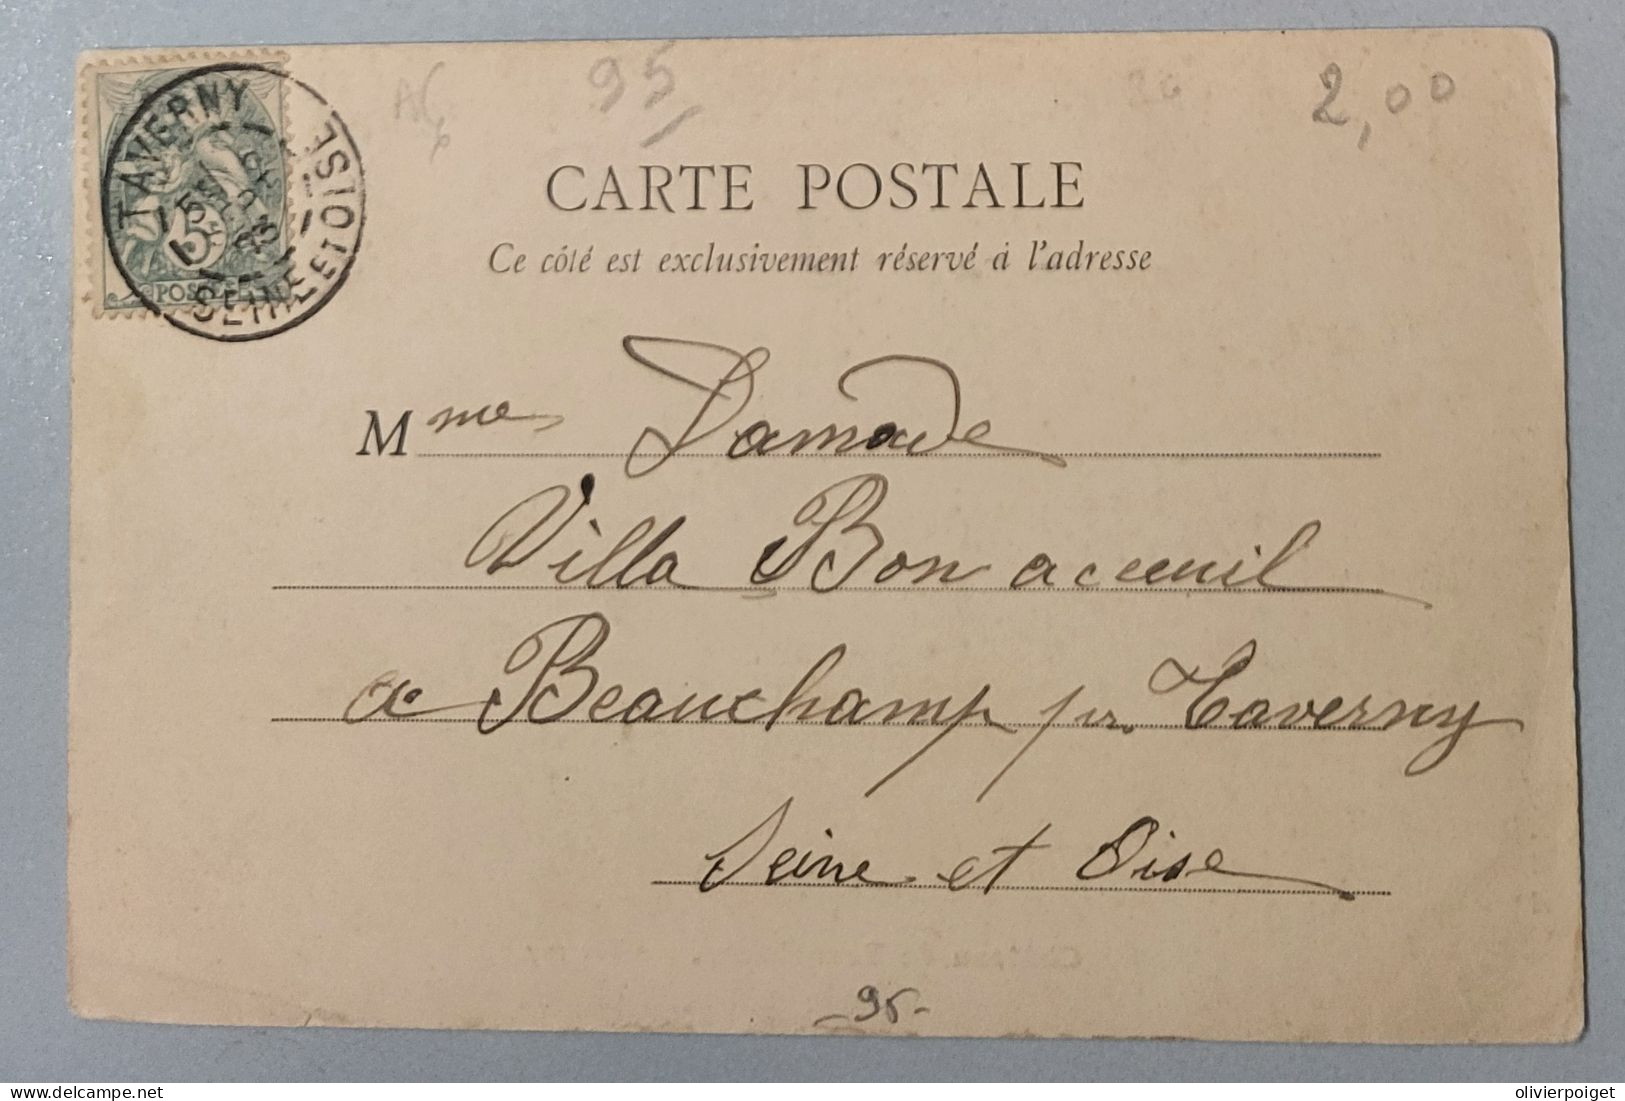 95
2,00
TAVERNY
SEINE ET OISE
5
POSTES
CARTE POSTALE
Ce côté est exclusivement réservé à l'adresse
Mme Damade
Villa Bon aceuil
a Beauchamp pr. Taverny
Seine et Oise
- 95 -
olivierpoiget